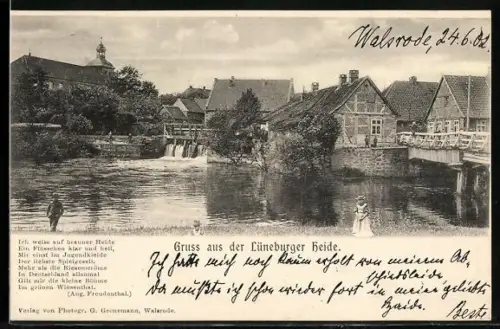 Walsrode, 24.6.02.
Gruss aus der Lüneburger Heide.
Ich weiss auf brauner Heide
Ein Flüsschen klar und hell,
Mir einst im Jugendkleide
Der liebste Spielgesell,
Mehr als die Riesenströme
In Deutschland allzumal
Gilt mir die kleine Böhme
Im grünen Wiesenthal.
(Aug. Freudenthal.)
Ich hatte mich noch kaum erholt von meinem Ab,
schiedsleide
da mußte ich schon wieder fort in meine geliebte
Haide.
Beste
Verlag von Photogr. G. Grenemann, Walsrode.